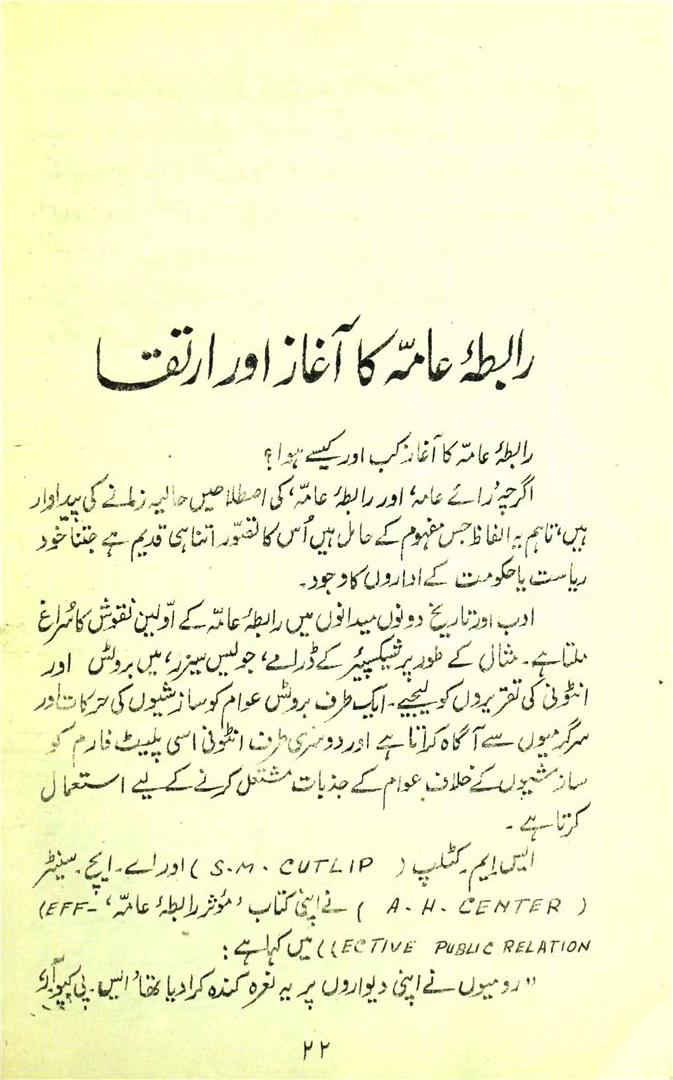 رابطۂ عامّہ کا آغاز اور ارتقا
رابطۂ عامّہ کا آغاز کب اور کیسے ہوا؟
اگرچہ ’رائے عامہ‘ اور رابطۂ عامّہ‘ کی اصطلاحیں حالیہ زمانے کی پیداوار
ہیں، تاہم یہ الفاظ جس مفہوم کے حامل ہیں اُس کا تصّور اتنا ہی قدیم ہے جتنا خود
ریاست یا حکومت کے اداروں کا وجود۔
ادب اور تاریخ دونوں میدانوں میں رابطۂ عامّہ کے اوّلین نقوش کا سُراغ
ملتا ہے۔ مثال کے طور پر شیکسپیئر کے ڈرامے، جولیس سیزر، میں بروٹس اور
انٹونی کی تقریروں کو لیجیے۔ ایک طرف بروٹس عوام کو سازشیوں کی حرکات اور
سرگرمیوں سے آگاہ کراتا ہے اور دوسری طرف انٹونی اسی پلیٹ فارم کو
سازشیوں کے خلاف عوام کے جذبات مشتعل کرنے کے لیے استعمال
کرتا ہے۔
ایس۔ ایم۔ کٹلپ (S.M. CUTLIP) اور اے۔ ایچ۔ سینٹر
(A. H. CENTER) نے اپنی کتاب ’مؤثر رابطۂ عامّہ‘ (EFF-
ECTIVE PUBLIC RELATION)) میں کہا ہے:
”رومیوں نے اپنی دیواروں پر یہ نعرہ کندہ کرا دیا تھا ’ایس۔ پی کیو آر‘
۲۲